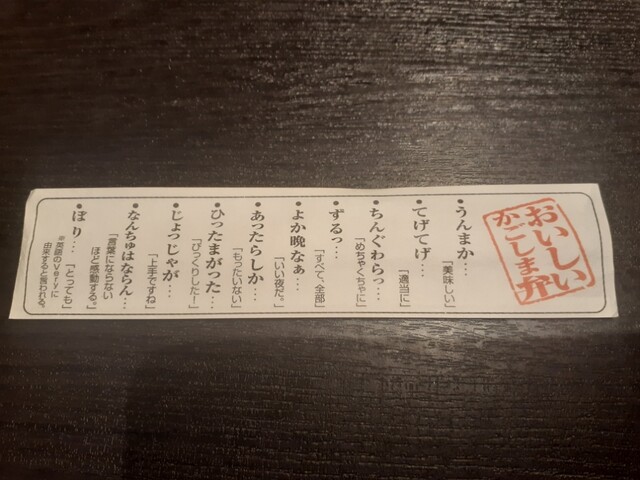 おいしい
かごしま弁
●うんまか…
「美味しい」
●てげてげ…
「適当に」
●ちんぐわらっ…
「めちゃくちゃに」
●ずるっ…
「すべて、全部」
●よか晩なぁ…
「いい夜だ。」
●あったらしか…
「もったいない」
●ひったまがった…
「びっくりした!」
●じょっじゃが…
「上手ですね」
●なんちゅはならん…
「言葉にならない
ほど感動する。」
●ぼり…「とっても」
※英語のveryに
由来すると言われる。